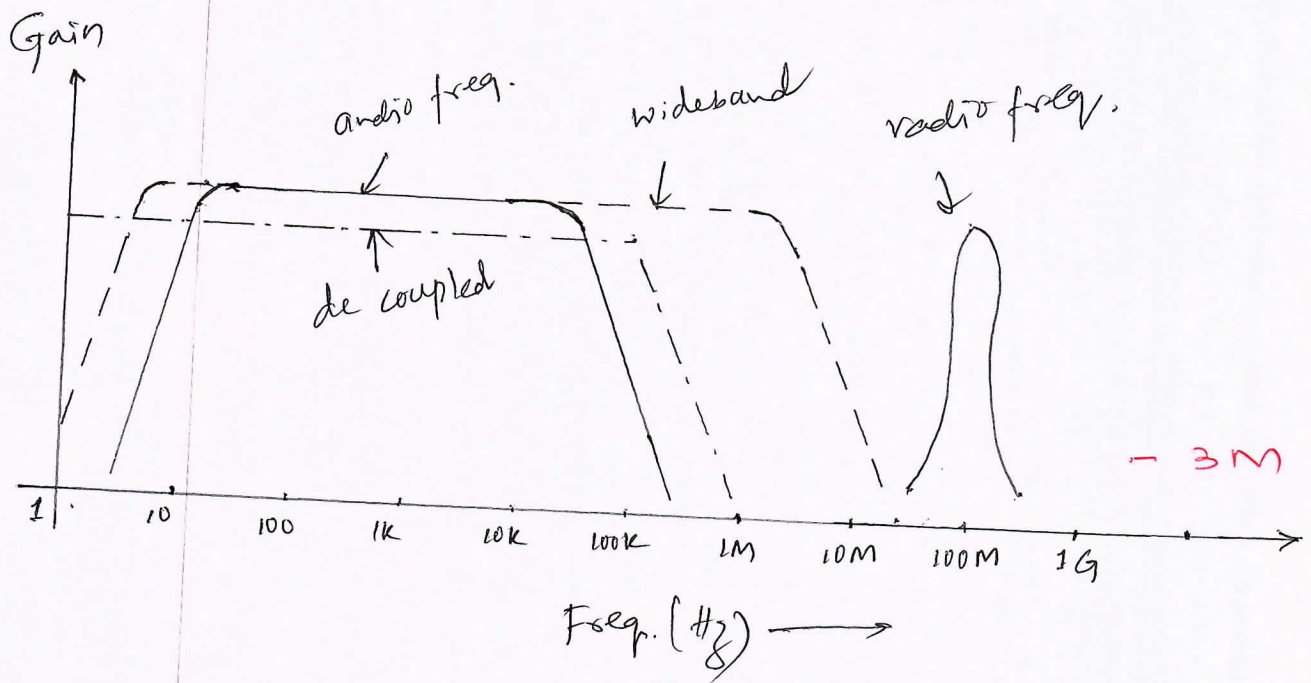 Gain
audio freq.
wideband
radio freq.
dc coupled
- 3M
1 10 100 1K 10K 100K 1M 10M 100M 1G
Freq. (Hz)